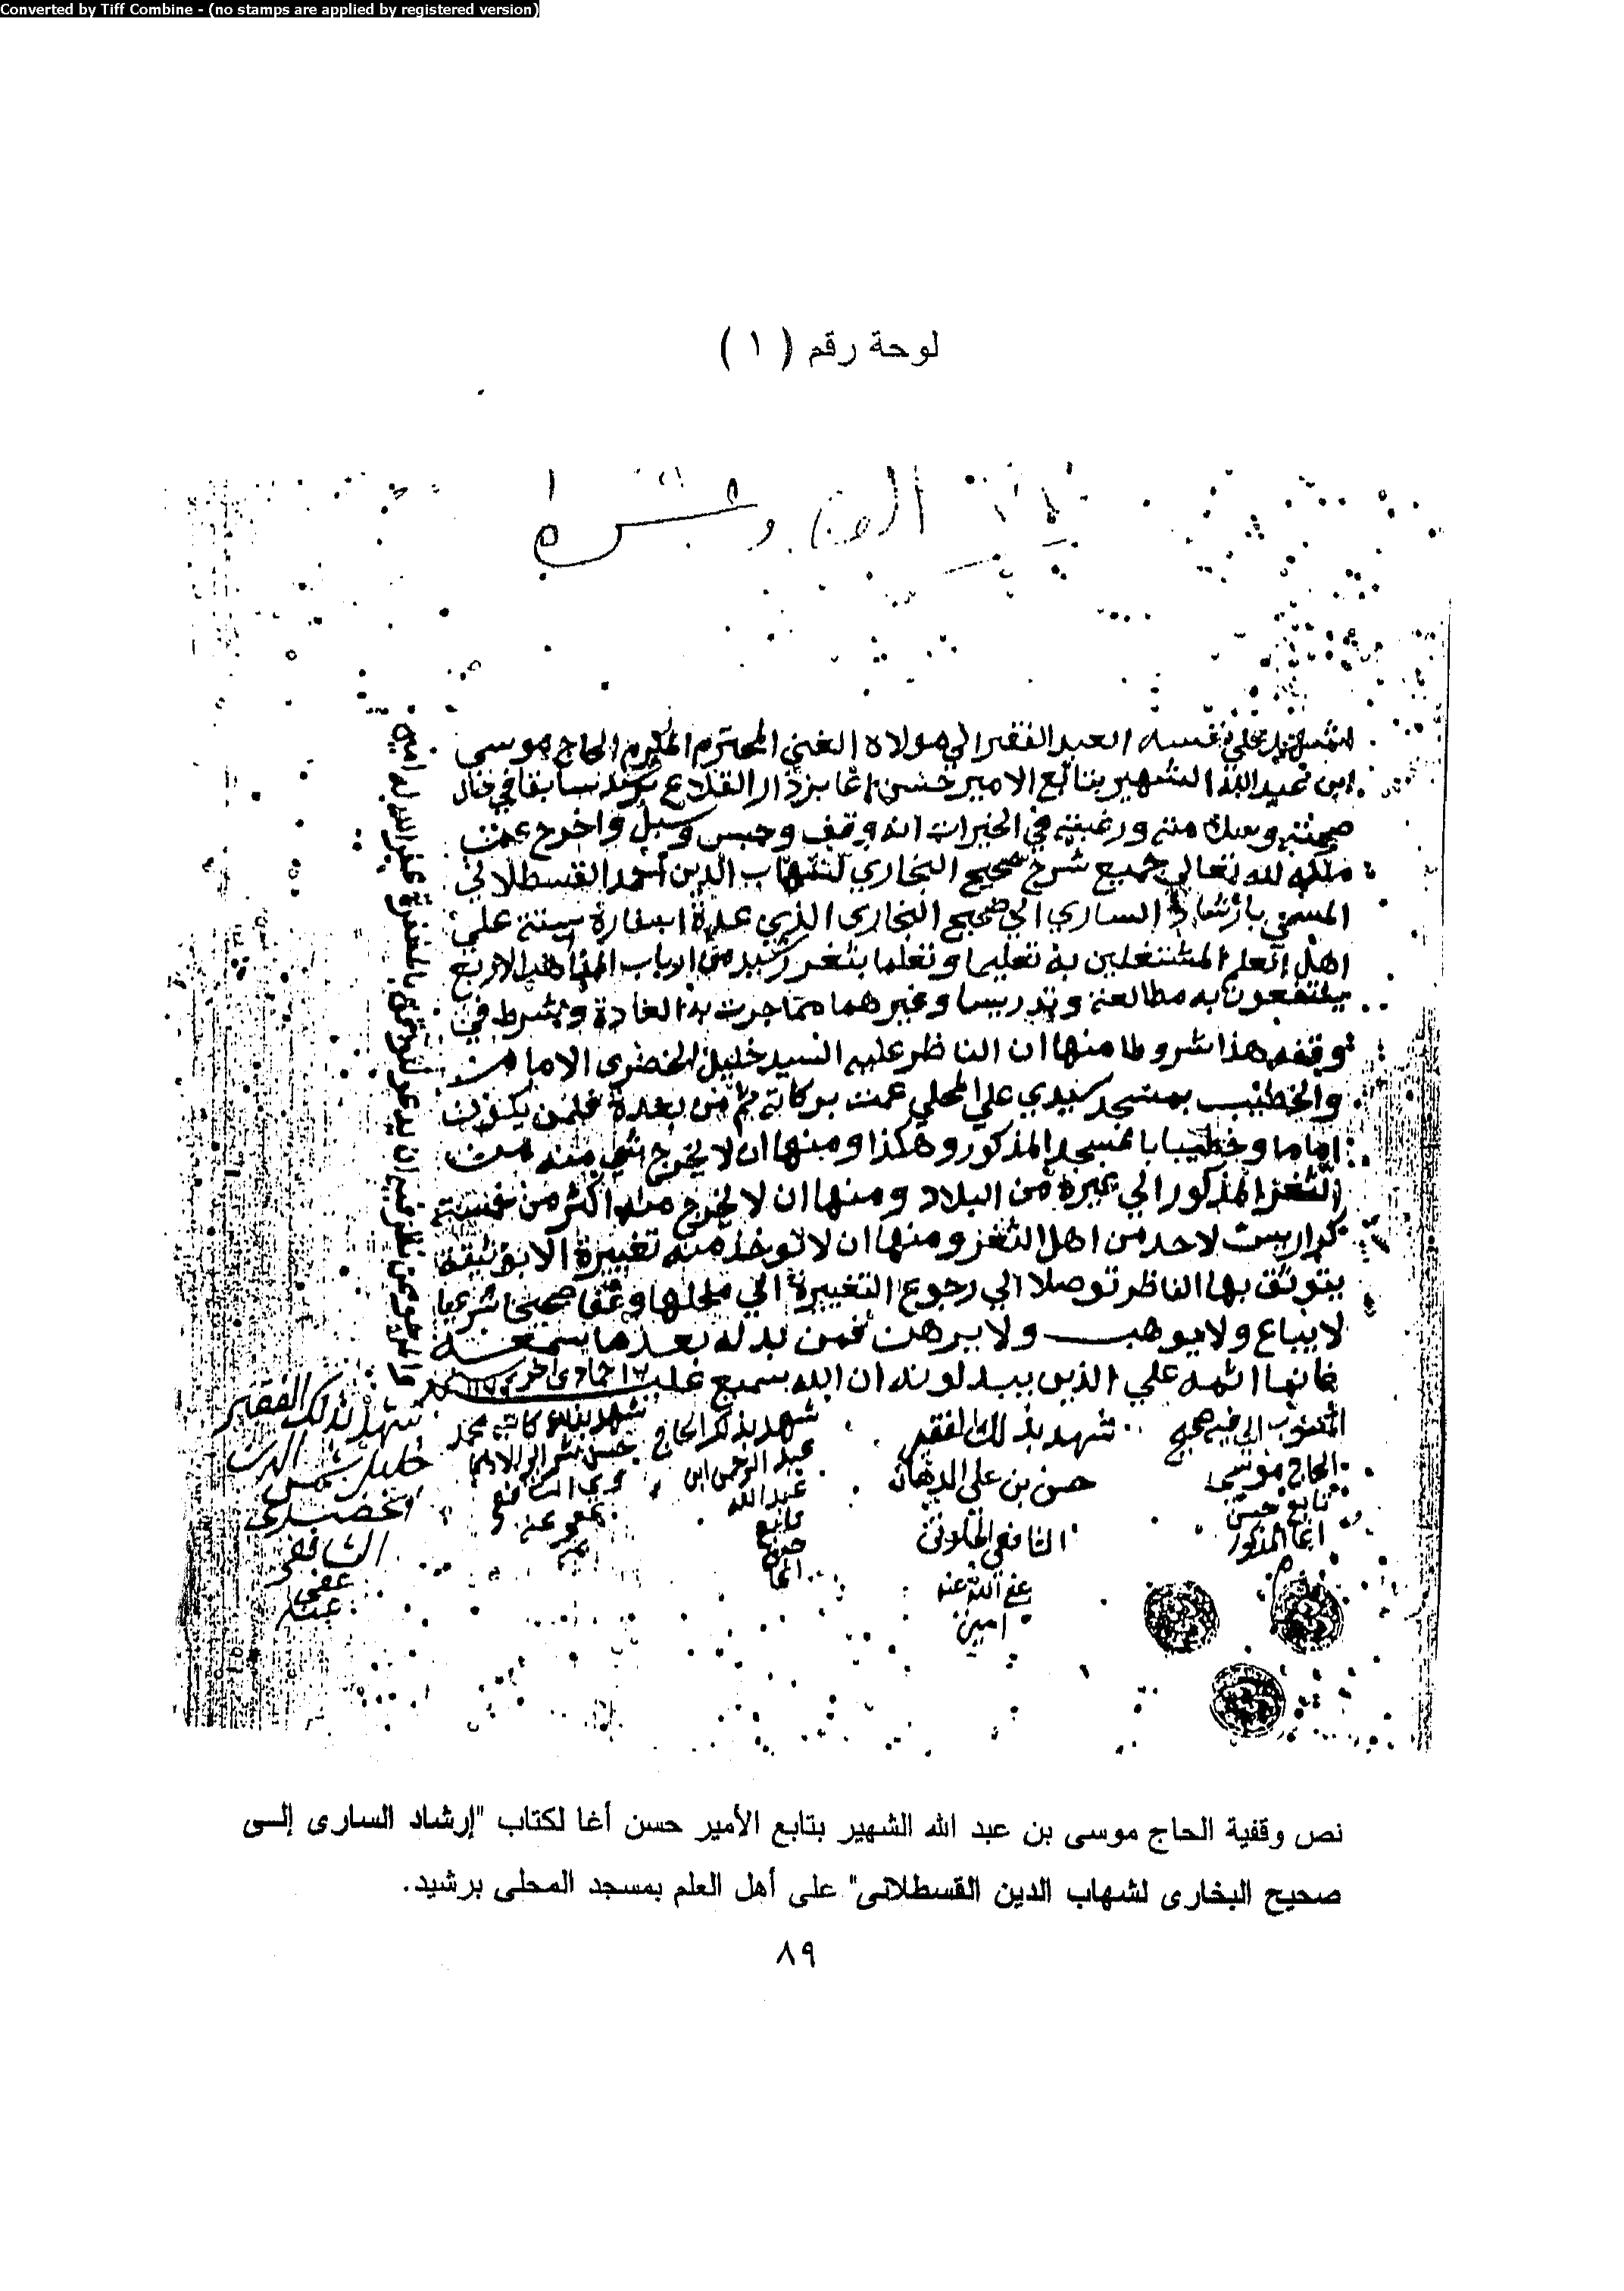 Converted by Tiff Combine - (no stamps are applied by registered version)
لوحة رقم ( ١ )
على نفسه العبد الفقير الي مولاه الغني المحترم المكرم الحاج موسى
ابن عبد الله الشهير بتابع الامير حسن اغا بزدار القلاع سابقا في حال
صحته ورغبته في الخيرات انه وقف وحبس وسبل واخرج عن
ملكه لله تعالي جميع شرح صحيح البخاري لشهاب الدين احمد القسطلاني
المسمى بارشاد الساري الي صحيح البخاري الذي عدة اسفاره ستة علي
اهل العلم المشتغلين به تعليما وتعلما بثغر رشيد من ارباب المذاهب الاربع
ينتفعون به مطالعة وتدريسا وغيرهما مما جرت به العادة وشرط في
وقفه هذا شروطا منها ان الناظر عليه السيد خليل الخضري الامام
والخطيب بمسجد سيدي علي المحلي عمت بركاته ثم من بعده فلمن يكون
اماما وخطيبا بالمسجد المذكور وهكذا ومنها ان لا يخرج شي منه من
الثغر المذكور الي غيره من البلاد ومنها ان لا يخرج منه اكثر من خمسة
كراريس لاحد من اهل الثغر ومنها ان لا توخذ منه تغييرة الا بوثيقة
يتوثق بها الناظر توصلا الي رجوع التغييرة الي محلها وقفا صحيحا شرعيا
لا يباع ولا يوهب ولا يرهن فمن بدله بعد ما سمعه
فانما اثمه علي الذين يبدلونه ان الله سميع عليم
المنسوب الي فيه صحيح
الحاج موسى
تابع حسن
اغا المذكور
شهد بذلك الفقير
حسن بن علي الدهان
الشافعي الخلوتي
عفي الله عنه
امين
شهد بذلك الحاج
عبد الرحمن ابن
عبد الله
تابع
حسن
اغا
شهد بذلك كاتبه محمد
الشافعي
عفي عنه
شهد بذلك الفقير
خليل شمس الدين
الخضري
الشافعي
عفي
عنه
نص وقفية الحاج موسى بن عبد الله الشهير بتابع الأمير حسن أغا لكتاب "إرشاد السارى إلـى
صحيح البخارى لشهاب الدين القسطلانى" على أهل العلم بمسجد المحلى برشيد.
٨٩